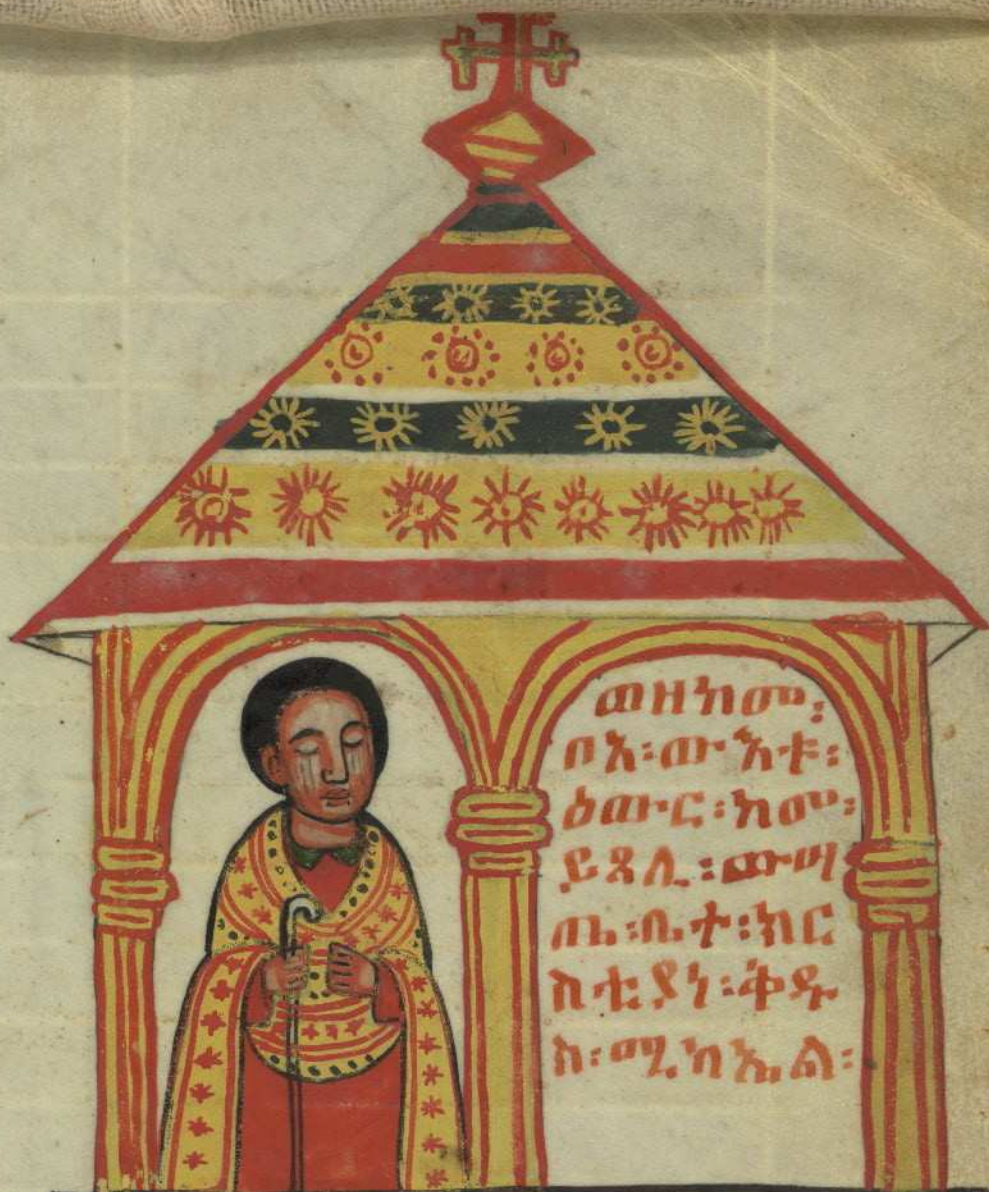 ወዘከመ፡
ቦአ፡ውእቱ፡
ዕውር፡ከመ፡
ይጸሊ፡ውሣ
ጤ፡ቤተ፡ክር
ስቲያነ፡ቅዱ
ስ፡ሚካኤል፡